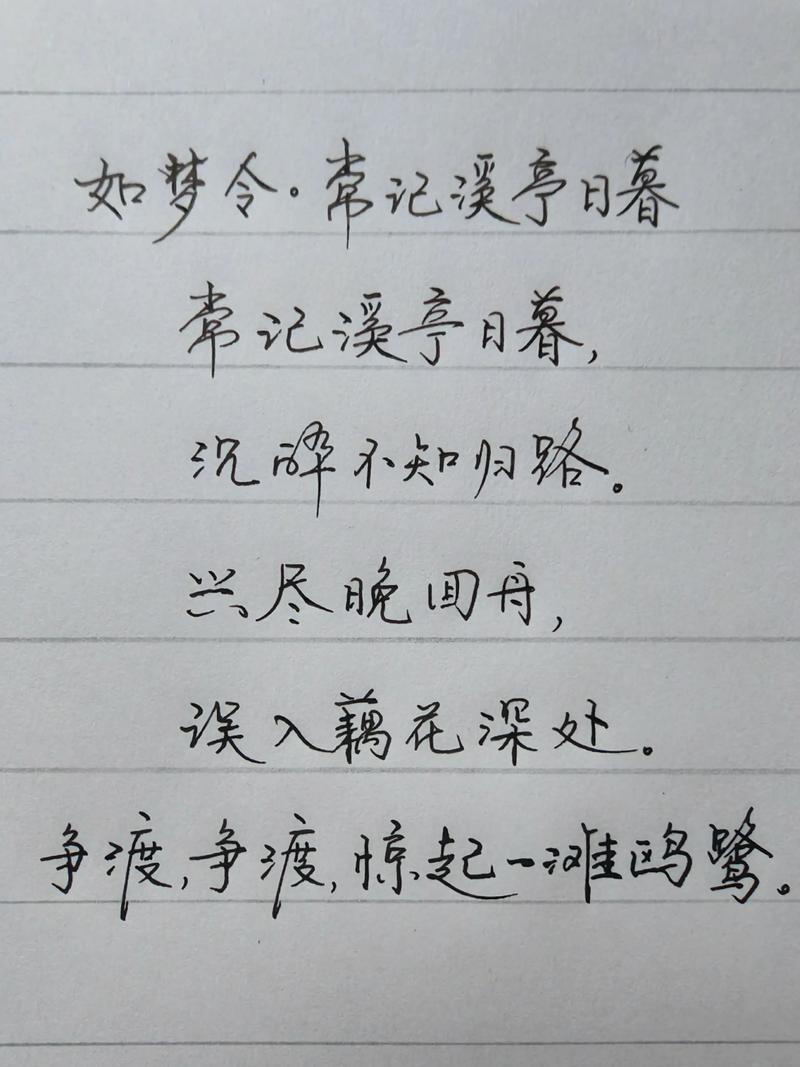 如梦令·常记溪亭日暮
常记溪亭日暮，
沉醉不知归路。
兴尽晚回舟，
误入藕花深处。
争渡，争渡，惊起一滩鸥鹭。